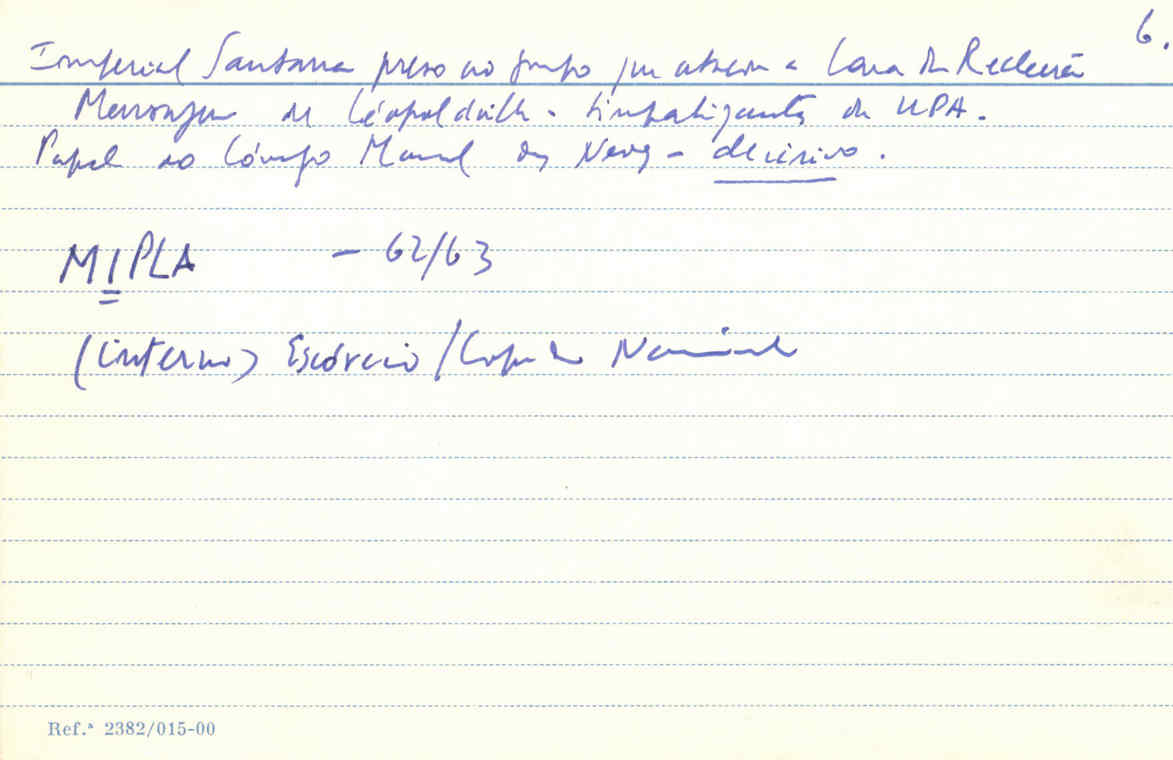 6.
Imperial Santana preso no grupo que atacou a Casa da Reclusão
Mensagem de Léopoldville - simpatizante da UPA.
Papel do Cónego Manuel das Neves - decisivo.
MIPLA - 62/63
(interno) Escórcio /
Ref.ª 2382/015-00